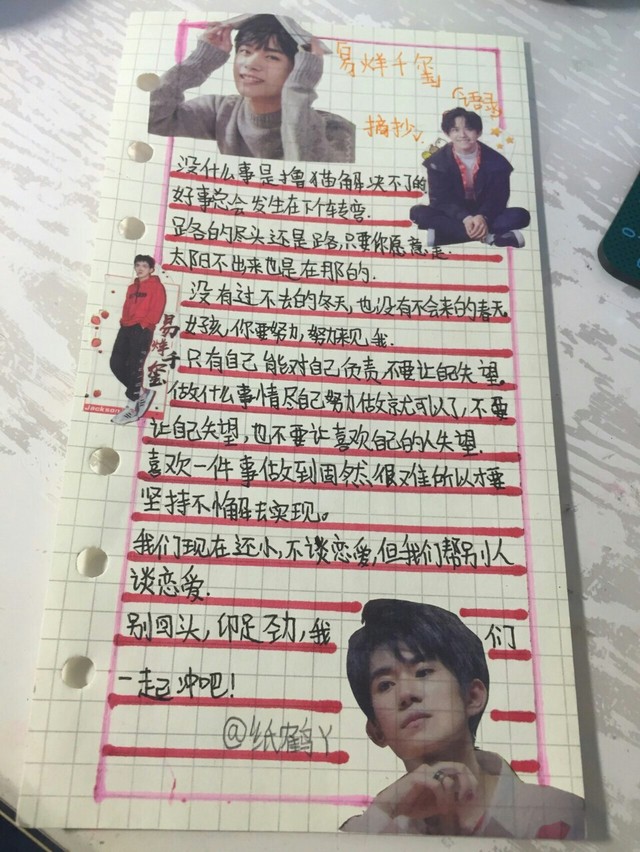 易烊千玺
「语录」
摘抄
没什么事是撸猫解决不了的
好事总会发生在下个转弯.
路的尽头还是路,只要你愿意走.
太阳不出来也是在那的.
没有过不去的冬天,也没有不会来的春天.
好孩,你要努力,努力来见我.
只有自己能对自己负责,不要让自己失望.
做什么事情尽自己努力做就可以了,不要
让自己失望,也不要让喜欢自己的人失望.
喜欢一件事做到固然很难所以才要
坚持不懈去实现。
我们现在还小,不谈恋爱,但我们帮别人
谈恋爱.
别回头,卯足劲,我们
一起冲吧!
@纸鹤丫
易烊千玺
Jackson